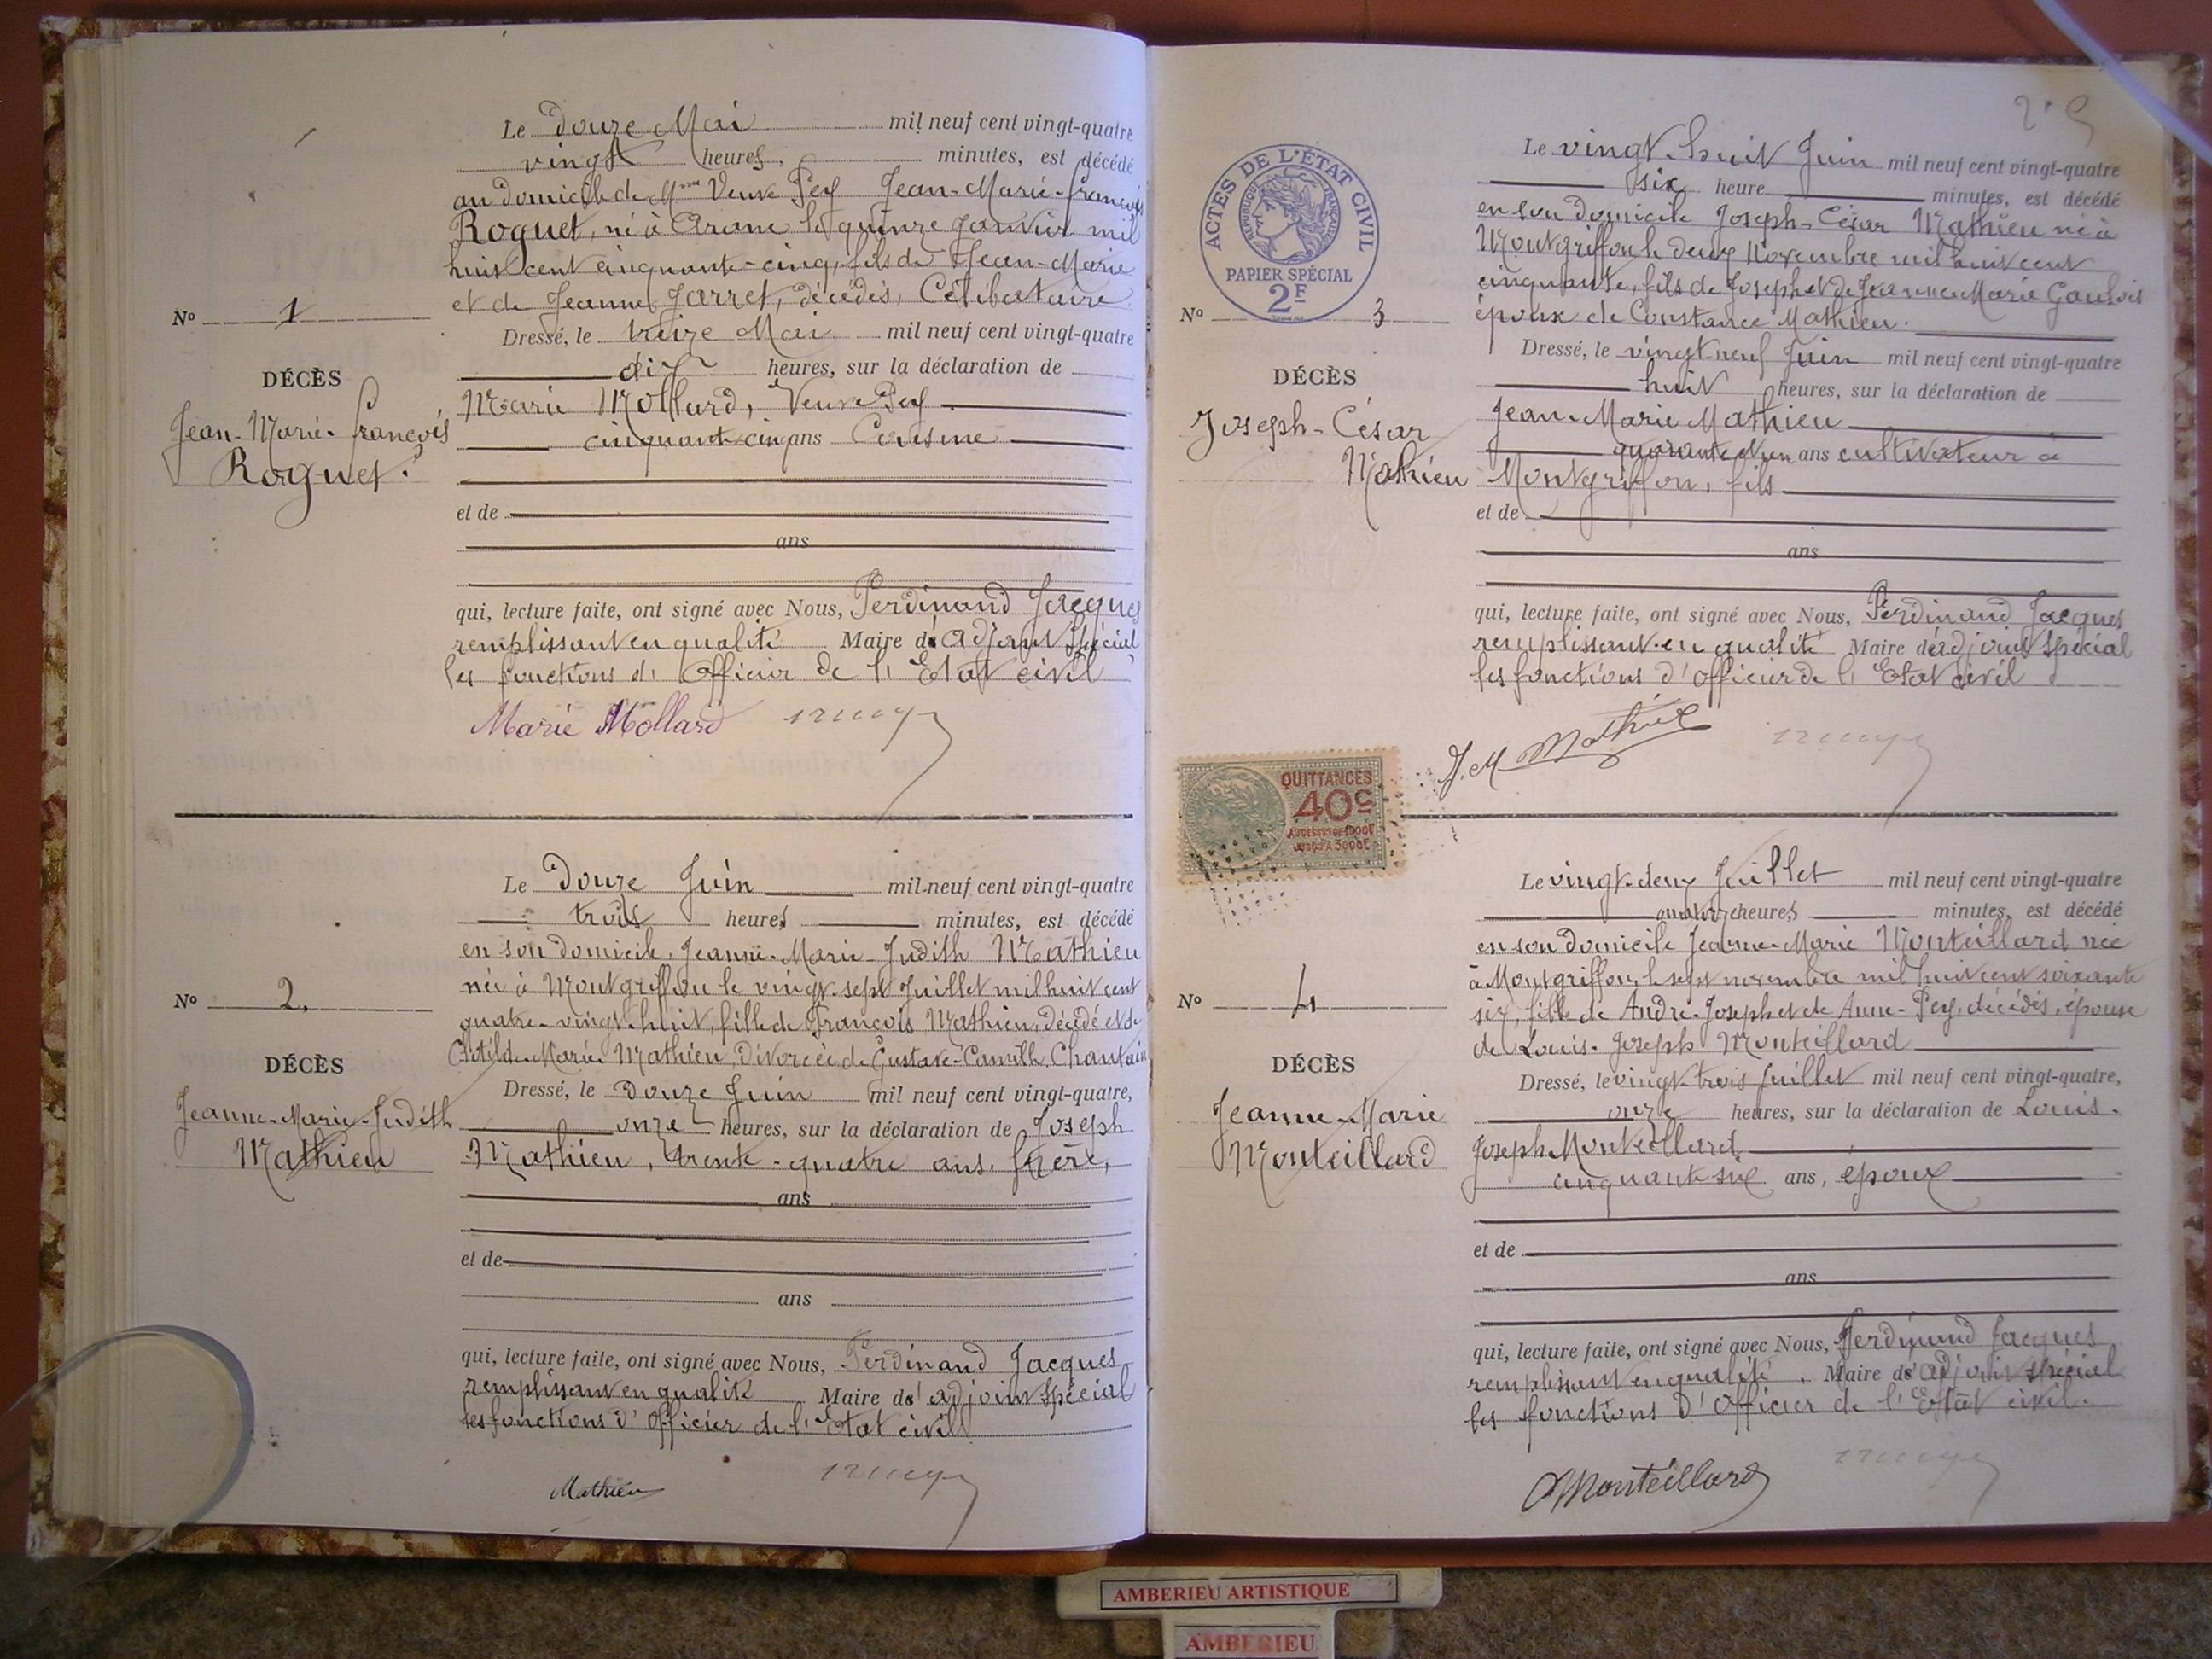 Le douze Mai mil neuf cent vingt-quatre
vingt heures, minutes, est décédé
au domicile de Mme Veuve Pey Jean-Marie-François
Roguet, né à Arane le quinze Janvier mil
huit cent cinquante-cinq, fils de Jean-Marie
et de Jeanne Jarret, décédés, Célibataire
No 1
Dressé, le treize Mai mil neuf cent vingt-quatre
dix heures, sur la déclaration de
DÉCÈS
Marie Mollard, Veuve Pey
Jean-Marie-François
cinquante-cinq ans
Roguet.
et de
ans
qui, lecture faite, ont signé avec Nous, Ferdinand Jacques
remplissant en qualité Maire d'adjoint Spécial
les fonctions d'Officier de l'Etat civil
Marie Mollard
Le Douze Juin mil neuf cent vingt-quatre
trois heures minutes, est décédé
en son domicile, Jeanne-Marie-Judith Mathieu
née à Montgriffon le vingt-sept Juillet mil huit cent
quatre-vingt-huit, fille de François Mathieu, décédé et de
Clotilde-Marie Mathieu, divorcée de Gustave-Camille Chantain
No 2.
Dressé, le douze Juin mil neuf cent vingt-quatre,
DÉCÈS
onze heures, sur la déclaration de Joseph
Jeanne-Marie-Judith
Mathieu
Mathieu, trente-quatre ans, frère,
ans
et de
ans
qui, lecture faite, ont signé avec Nous, Ferdinand Jacques
remplissant en qualité Maire d'adjoint Spécial
les fonctions d'Officier de l'Etat civil
Mathieu
ACTES DE L'ÉTAT CIVIL
RÉPUBLIQUE FRANÇAISE
PAPIER SPÉCIAL
2F
Le vingt-huit Juin mil neuf cent vingt-quatre
six heure minutes, est décédé
en son domicile Joseph-César Mathieu né à
Montgriffon le deux Novembre mil huit cent
cinquante, fils de Joseph et de Jeanne Marie Gaulois
époux de Constance Mathieu.
No 3
Dressé, le vingt-neuf Juin mil neuf cent vingt-quatre
DÉCÈS
huit heures, sur la déclaration de
Joseph-César
Mathieu
Jean-Marie Mathieu
quarante et un ans cultivateur à
Montgriffon, fils
et de
ans
qui, lecture faite, ont signé avec Nous, Ferdinand Jacques
remplissant en qualité Maire d'adjoint Spécial
les fonctions d'Officier de l'Etat civil
J. M Mathieu
QUITTANCES
40c
AU-DESSUS DE 1000F
JUSQU'A 3000F
Le vingt-deux Juillet mil neuf cent vingt-quatre
quatorze heures minutes, est décédé
en son domicile Jeanne-Marie Monteillard née
à Montgriffon, le sept novembre mil huit cent soixante
six, fille de André-Joseph et de Anne-Pey, décédés, épouse
de Louis-Joseph Monteillard
No 4
Dressé, le vingt-trois Juillet mil neuf cent vingt-quatre,
DÉCÈS
onze heures, sur la déclaration de Louis-
Jeanne-Marie
Monteillard
Joseph Monteillard
cinquante-six ans, époux
et de
ans
qui, lecture faite, ont signé avec Nous, Ferdinand Jacques
remplissant en qualité, Maire d'adjoint spécial
les fonctions d'Officier de l'Etat civil.
Monteillard
AMBERIEU ARTISTIQUE
AMBERIEU